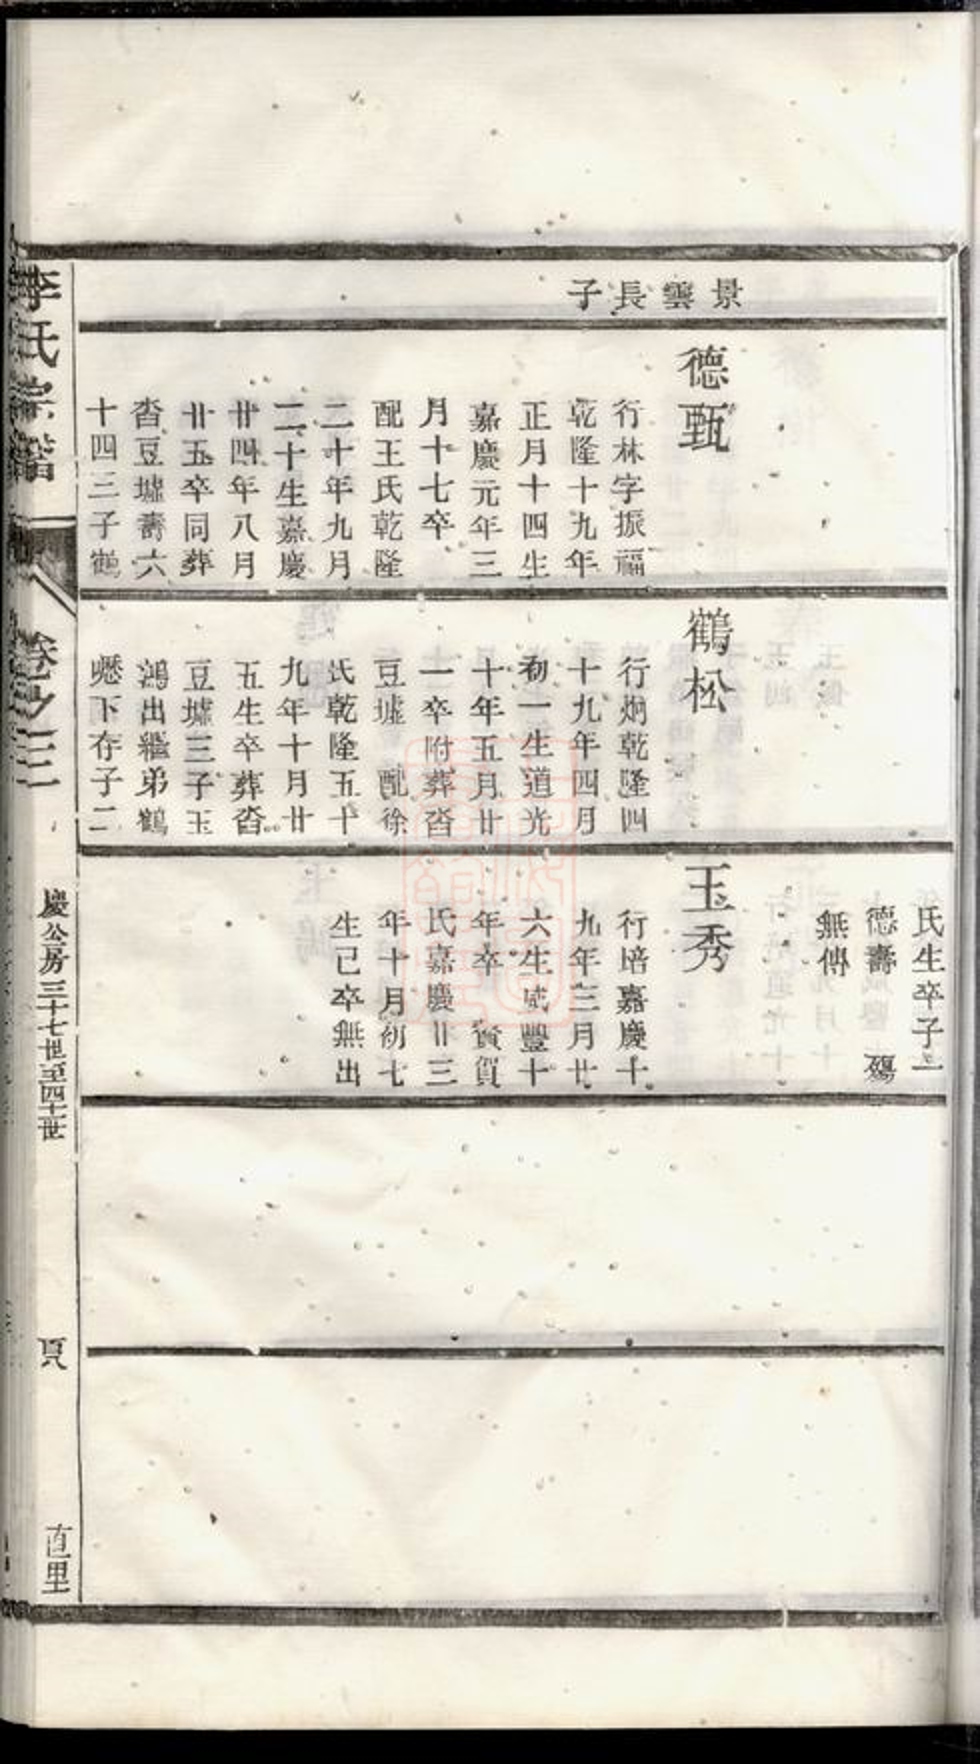 景雲長子
德甄
行林字振福
乾隆十九年
正月十四生
嘉慶元年三
月十七卒
配王氏乾隆
二十年九月
二十生嘉慶
廿四年八月
廿五卒同葬
沓豆墟壽六
十四三子鶴
鶴松
行炯乾隆四
十九年四月
初一生道光
十年五月廿
一卒附葬沓
豆墟 配徐
氏乾隆五十
九年十月廿
五生卒葬沓
豆墟三子玉
鴻出繼弟鶴
下存子二
氏生卒子二
德壽 殤
無傳
玉秀
行培嘉慶十
九年三月廿
六生咸豐十
年卒 賀
氏嘉慶廿三
年十月初七
生已卒無出
李氏宗譜
卷之三
慶公房三十七世至四十一世
直里